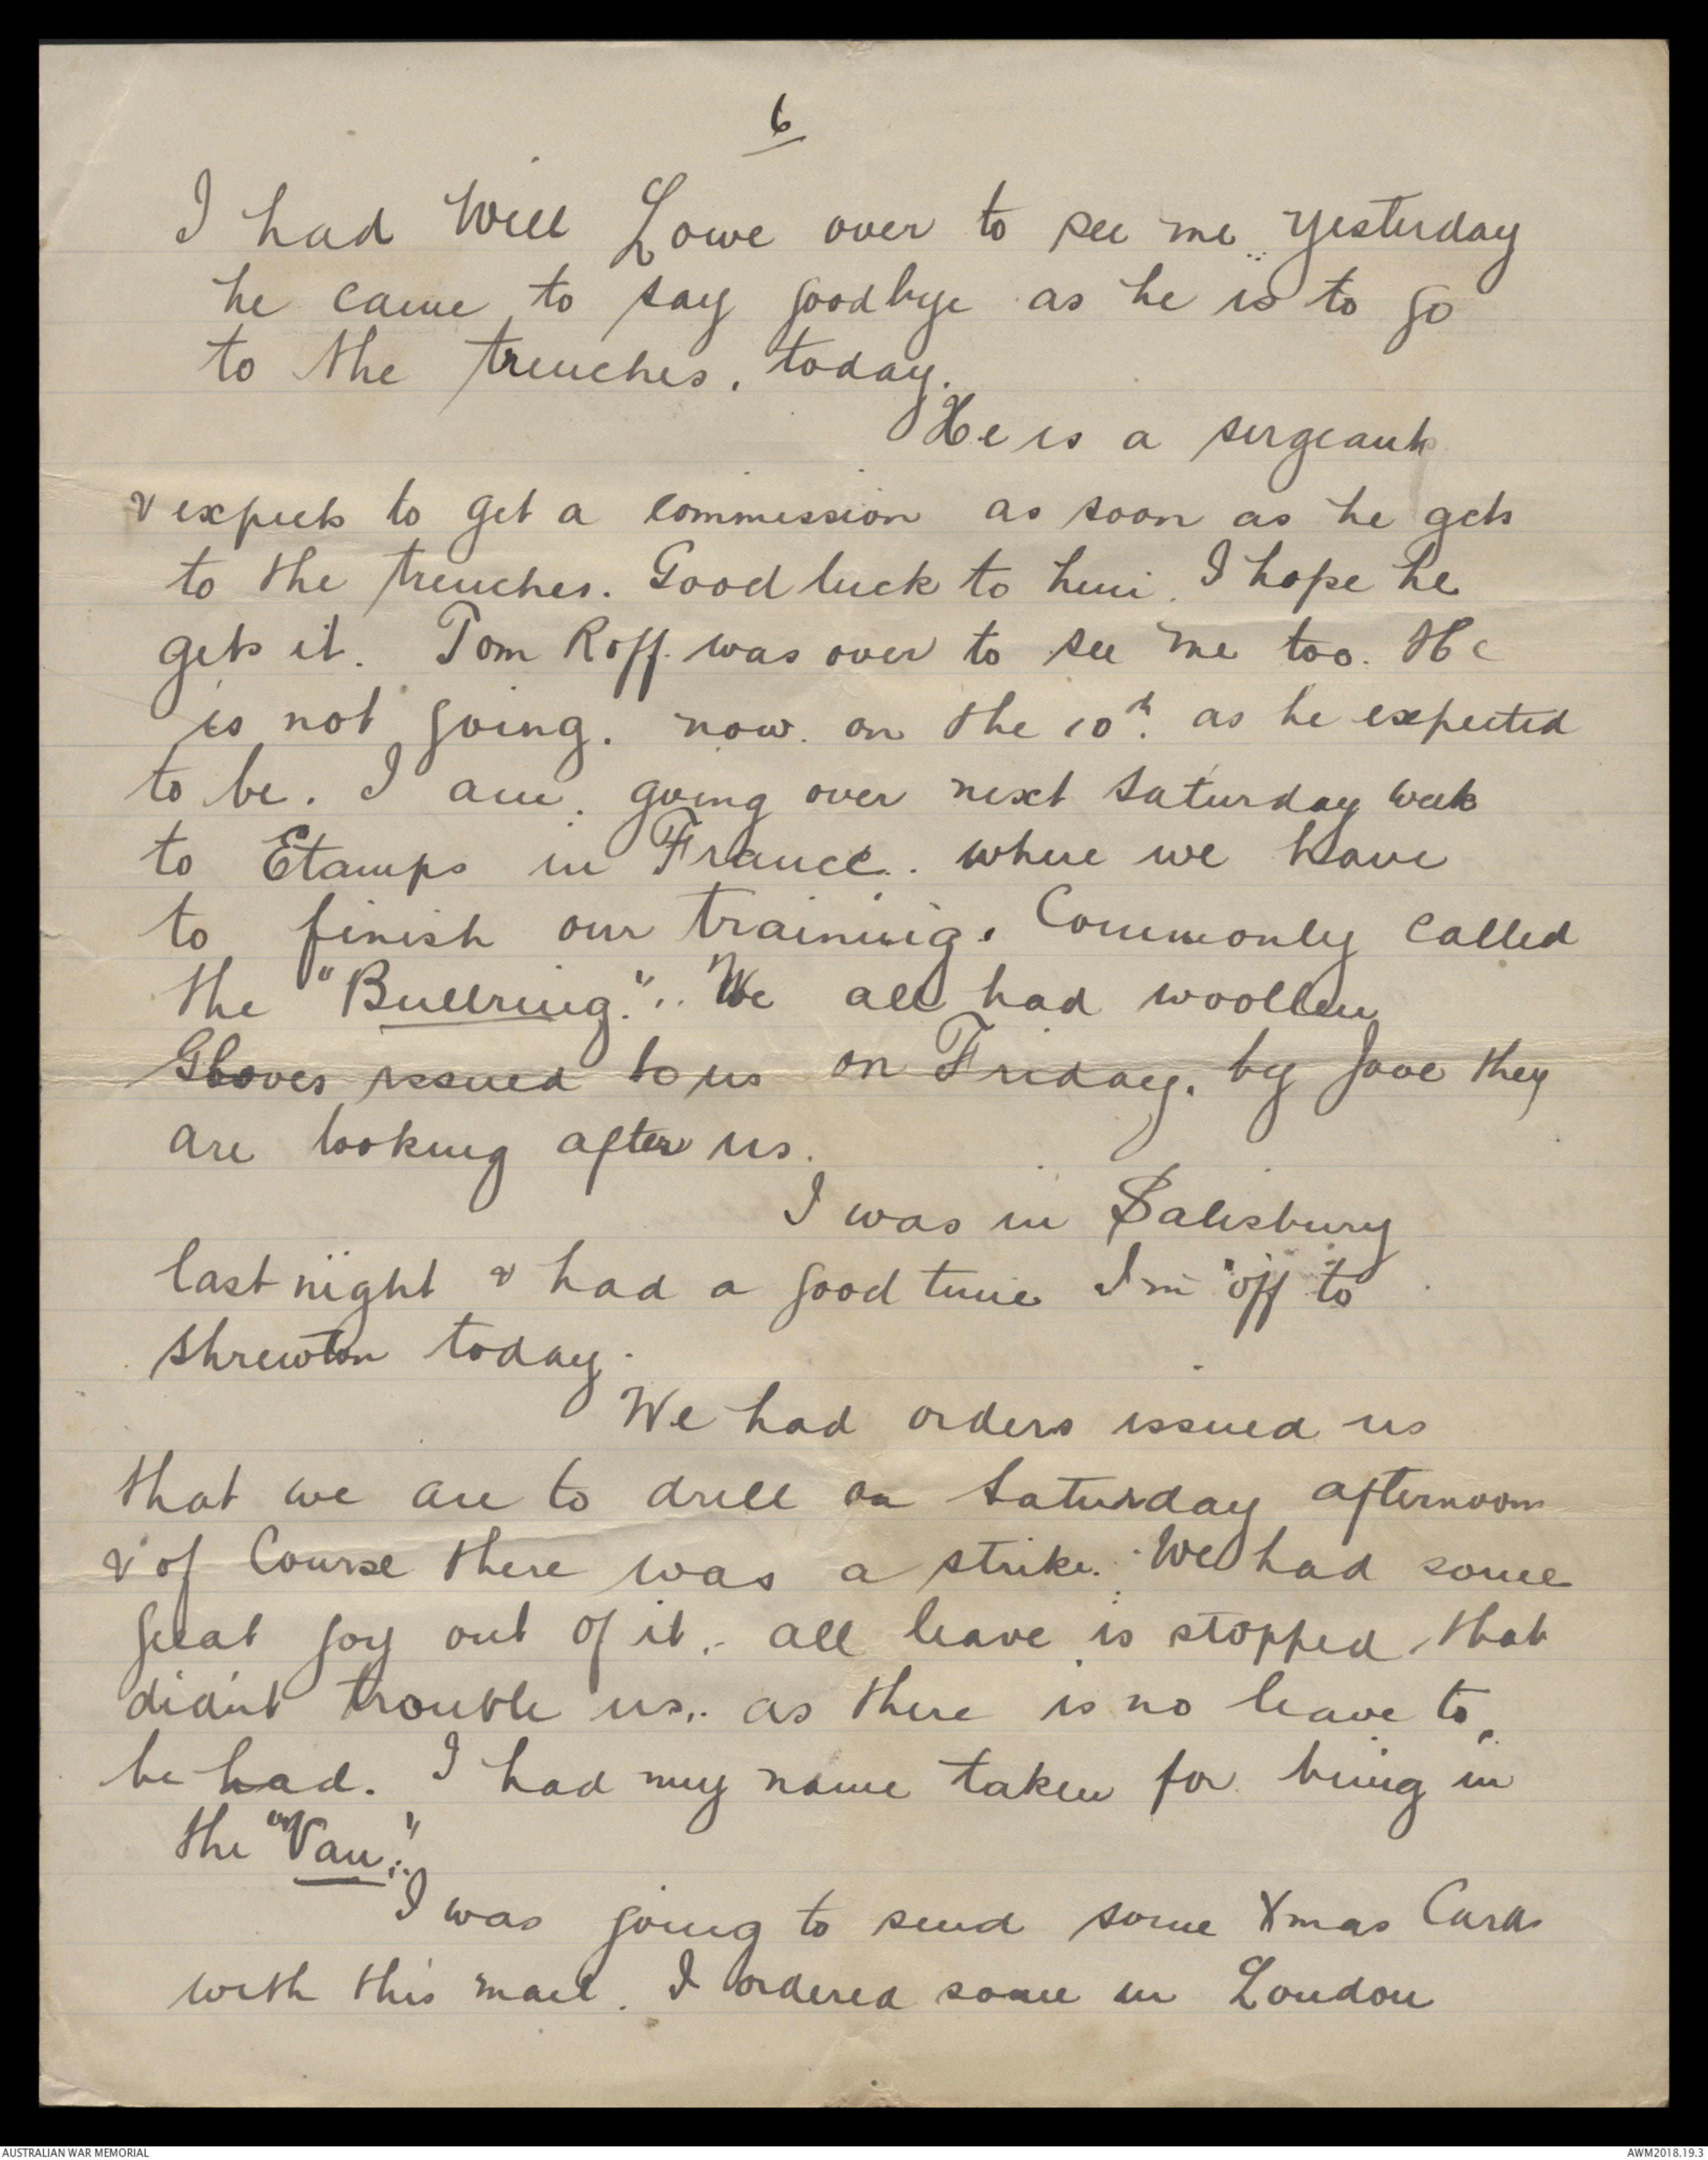 6
I had Will Lowe over to see me yesterday
he came to say goodbye as he is to go
to the trenches, today.
He is a sergeant
& expects to get a commission as soon as he gets
to the trenches. Good luck to him. I hope he
gets it. Tom Roff. was over to see me too. He
is not going. now. on the 10th. as he expected
to be. I am. going over next Saturday week
to Etamps in France.. where we have
to finish our training. Commonly called
the "Bullring.".. We all had woollen
Gloves issued to us on Friday. by Jove they
are looking after us.
I was in Salisbury
last night & had a good time I'm off to
Shrewton today.
We had orders issued us
that we are to drill on Saturday afternoon
& of Course there was a strike. We had some
great joy out of it. all leave is stopped, that
didn't trouble us,. as there is no leave to
be had. I had my name taken for being in
the "Van".
I was going to send some Xmas Cards
with this mail. I ordered some in London
AUSTRALIAN WAR MEMORIAL
AWM2018.19.3